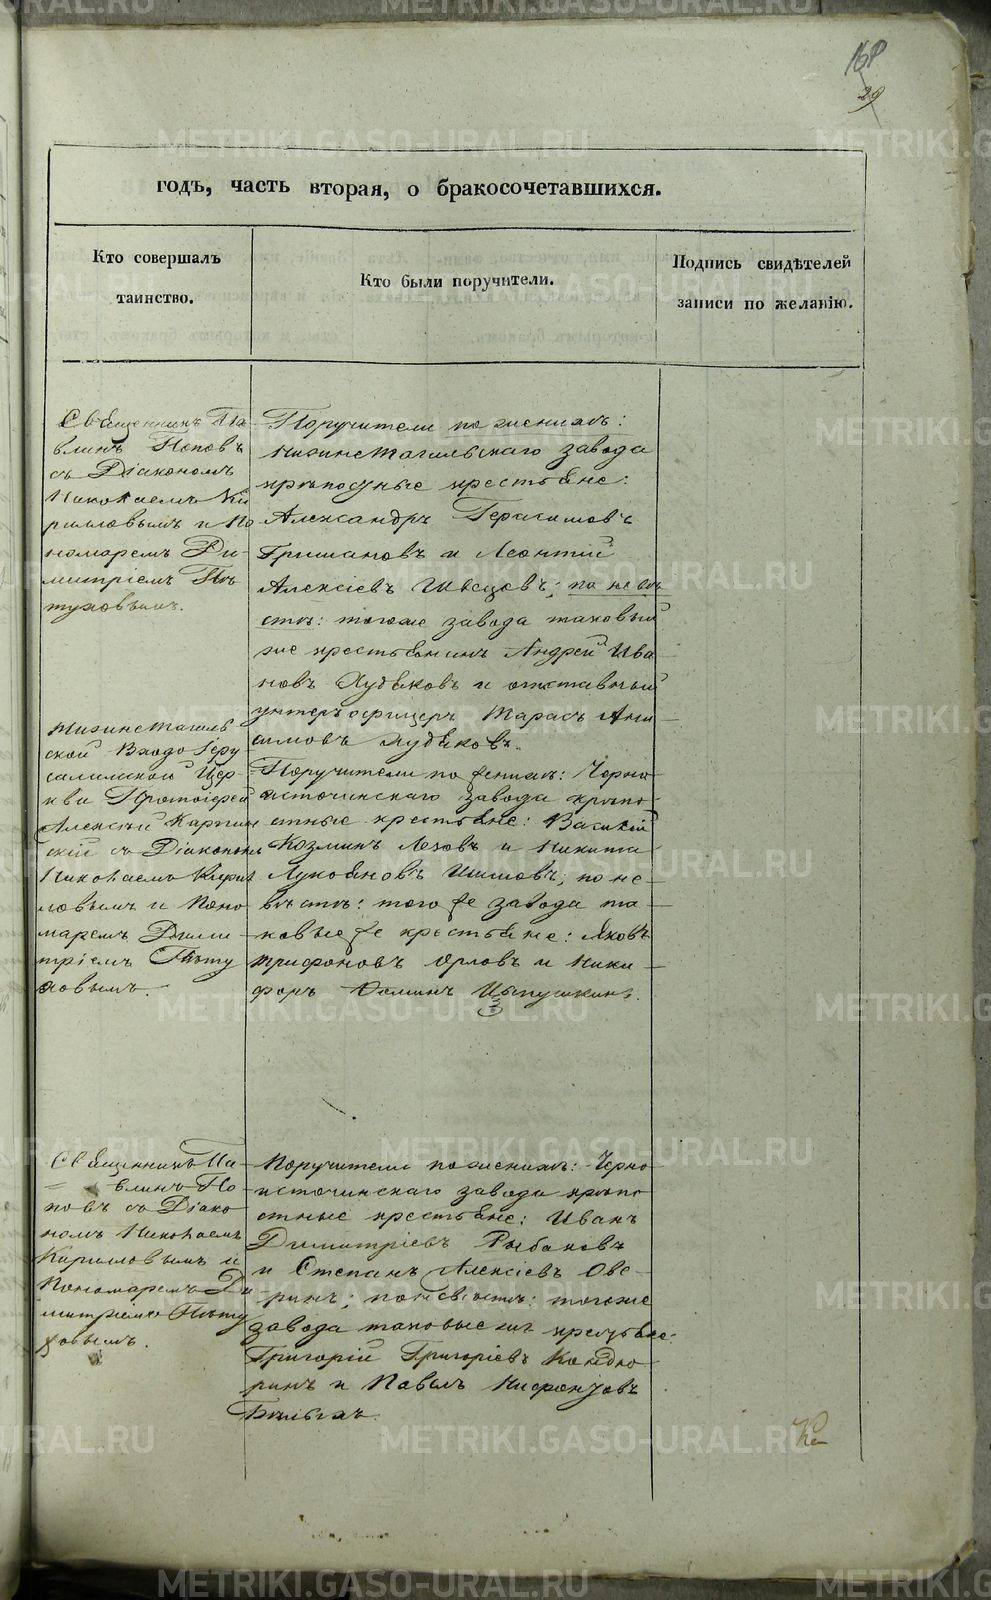 168
29
годъ, часть вторая, о бракосочетавшихся.
Кто совершалъ
таинство.
Кто были поручители.
Подпись свидѣтелей
записи по желанію.
Священникъ Па-
влинъ Поповъ
съ Діакономъ
Николаемъ Ки
рилловымъ и По
номаремъ Ди-
митріемъ Пѣ
туховымъ.
Поручители по женихѣ:
Нижнетагильскаго завода
крѣпостные крестьяне:
Александръ Герасимовъ
Гришановъ и Леонтій
Алексіевъ Швецовъ; по невѣ
стѣ: тогоже завода таковый
же крестьянинъ Андрей Ива
новъ Худяковъ и отставный
унтеръ офицеръ Тарасъ Ани
симовъ Худяковъ.
Нижнетагиль
ской Входо Іеру
салимской Цер-
кви Протоіерей
Алексій Карпин
скій съ Діакономъ
Николаемъ Кирил
ловымъ и Поно
маремъ Дими
тріемъ Пѣту
ховымъ.
Поручители по женихѣ: Черно-
источинскаго завода крѣпо-
стные крестьяне: Василій
Козминъ Лезовъ и Никита
Лукояновъ Шишовъ; по не-
вѣстѣ: того же завода та-
ковые же крестьяне: Яковъ
Трифоновъ Орловъ и Ники-
форъ Фоминъ
Священникъ Па-
влинъ По-
повъ съ Діако-
номъ Николаемъ
Кирилловымъ и
Пономаремъ Ди-
митріемъ Пѣту
ховымъ.
Поручители по женихѣ: Черно-
источинскаго завода крѣпо
стные крестьяне: Иванъ
Димитріевъ Рыбаковъ
и Степанъ Алексіевъ Ове-
ринъ; по невѣстѣ: тогоже
завода таковые же крестьяне:
Григорій Григоріевъ Кондю-
ринъ и Павелъ
METRIKI.GASO-URAL.RU